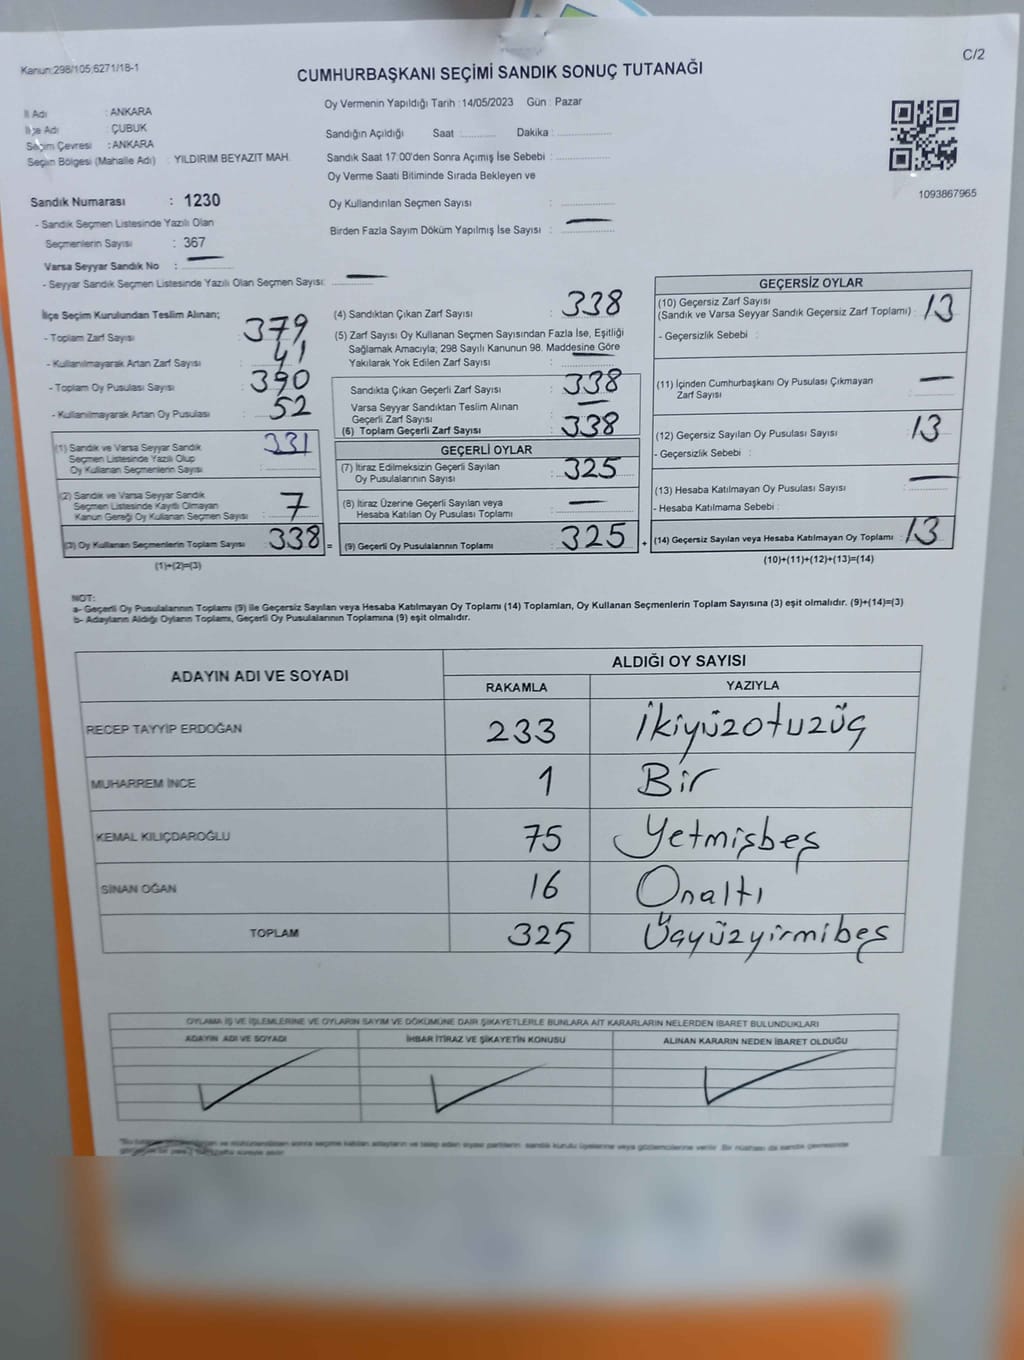 Kanun:298/105;6271/18-1
C/2
CUMHURBAŞKANI SEÇİMİ SANDIK SONUÇ TUTANAĞI
Oy Vermenin Yapıldığı Tarih : 14/05/2023 Gün : Pazar
İl Adı : ANKARA
İlçe Adı : ÇUBUK
Seçim Çevresi : ANKARA
Seçim Bölgesi (Mahalle Adı) : YILDIRIM BEYAZIT MAH.
Sandığın Açıldığı Saat : Dakika :
Sandık Saat 17:00'den Sonra Açımış İse Sebebi :
Oy Verme Saati Bitiminde Sırada Bekleyen ve
Oy Kullandırılan Seçmen Sayısı :
Birden Fazla Sayım Döküm Yapılmış İse Sayısı : —
1093867965
Sandık Numarası : 1230
- Sandık Seçmen Listesinde Yazılı Olan
Seçmenlerin Sayısı : 367
Varsa Seyyar Sandık No : —
- Seyyar Sandık Seçmen Listesinde Yazılı Olan Seçmen Sayısı: —
İlçe Seçim Kurulundan Teslim Alınan;
- Toplam Zarf Sayısı : 379
- Kullanılmayarak Artan Zarf Sayısı : 41
- Toplam Oy Pusulası Sayısı : 390
- Kullanılmayarak Artan Oy Pusulası : 52
(1) Sandık ve Varsa Seyyar Sandık
Seçmen Listesinde Yazılı Olup
Oy Kullanan Seçmenlerin Sayısı : 331
(2) Sandık ve Varsa Seyyar Sandık
Seçmen Listesinde Kayıtlı Olmayan
Kanun Gereği Oy Kullanan Seçmen Sayısı : 7
(3) Oy Kullanan Seçmenlerin Toplam Sayısı 338 =
(1)+(2)=(3)
(4) Sandıktan Çıkan Zarf Sayısı : 338
(5) Zarf Sayısı Oy Kullanan Seçmen Sayısından Fazla İse, Eşitliği
Sağlamak Amacıyla; 298 Sayılı Kanunun 98. Maddesine Göre
Yakılarak Yok Edilen Zarf Sayısı : —
Sandıkta Çıkan Geçerli Zarf Sayısı : 338
Varsa Seyyar Sandıktan Teslim Alınan
Geçerli Zarf Sayısı : —
(6) Toplam Geçerli Zarf Sayısı : 338
GEÇERLİ OYLAR
(7) İtiraz Edilmeksizin Geçerli Sayılan
Oy Pusulalarının Sayısı : 325
(8) İtiraz Üzerine Geçerli Sayılan veya
Hesaba Katılan Oy Pusulası Toplamı : —
(9) Geçerli Oy Pusulalarının Toplamı : 325 +
GEÇERSİZ OYLAR
(10) Geçersiz Zarf Sayısı
(Sandık ve Varsa Seyyar Sandık Geçersiz Zarf Toplamı) : 13
- Geçersizlik Sebebi :
(11) İçinden Cumhurbaşkanı Oy Pusulası Çıkmayan
Zarf Sayısı : —
(12) Geçersiz Sayılan Oy Pusulası Sayısı : 13
- Geçersizlik Sebebi :
(13) Hesaba Katılmayan Oy Pusulası Sayısı : —
- Hesaba Katılmama Sebebi :
(14) Geçersiz Sayılan veya Hesaba Katılmayan Oy Toplamı : 13
(10)+(11)+(12)+(13)=(14)
NOT:
a- Geçerli Oy Pusulalarının Toplamı (9) ile Geçersiz Sayılan veya Hesaba Katılmayan Oy Toplamı (14) Toplamları, Oy Kullanan Seçmenlerin Toplam Sayısına (3) eşit olmalıdır. (9)+(14)=(3)
b- Adayların Aldığı Oyların Toplamı, Geçerli Oy Pusulalarının Toplamına (9) eşit olmalıdır.
ADAYIN ADI VE SOYADI
ALDIĞI OY SAYISI
RAKAMLA YAZIYLA
RECEP TAYYİP ERDOĞAN 233 İkiyüzotuzüç
MUHARREM İNCE 1 Bir
KEMAL KILIÇDAROĞLU 75 Yetmişbeş
SİNAN OĞAN 16 Onaltı
TOPLAM 325 Üçyüzyirmibeş
OYLAMA İŞ VE İŞLEMLERİNE VE OYLARIN SAYIM VE DÖKÜMÜNE DAİR ŞİKAYETLERLE BUNLARA AİT KARARLARIN NELERDEN İBARET BULUNDUKLARI
ADAYIN ADI VE SOYADI İHBAR İTİRAZ VE ŞİKAYETİN KONUSU ALINAN KARARIN NEDEN İBARET OLDUĞU